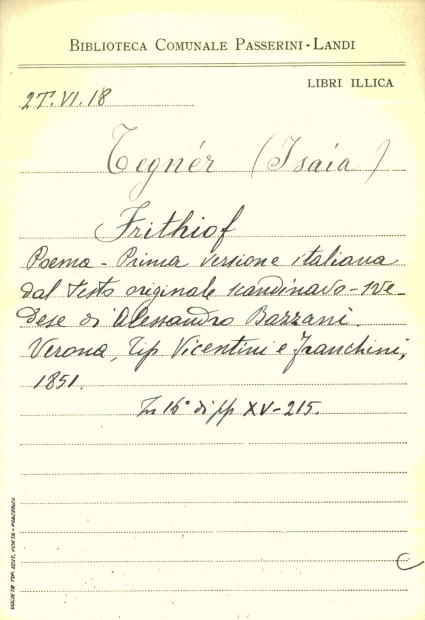 BIBLIOTECA COMUNALE PASSERINI-LANDI
LIBRI ILLICA
2T.VI.18
Tegnér (Isaia)
Frithiof
Poema - Prima versione italiana
dal testo originale scandinavo-sve-
dese di Alessandro Bazzani.
Verona, Tip. Vicentini e Franchini,
1851.
In 16° di pp XV-215.
SOCIETÀ TIP. EDIT. PORTA - PIACENZA